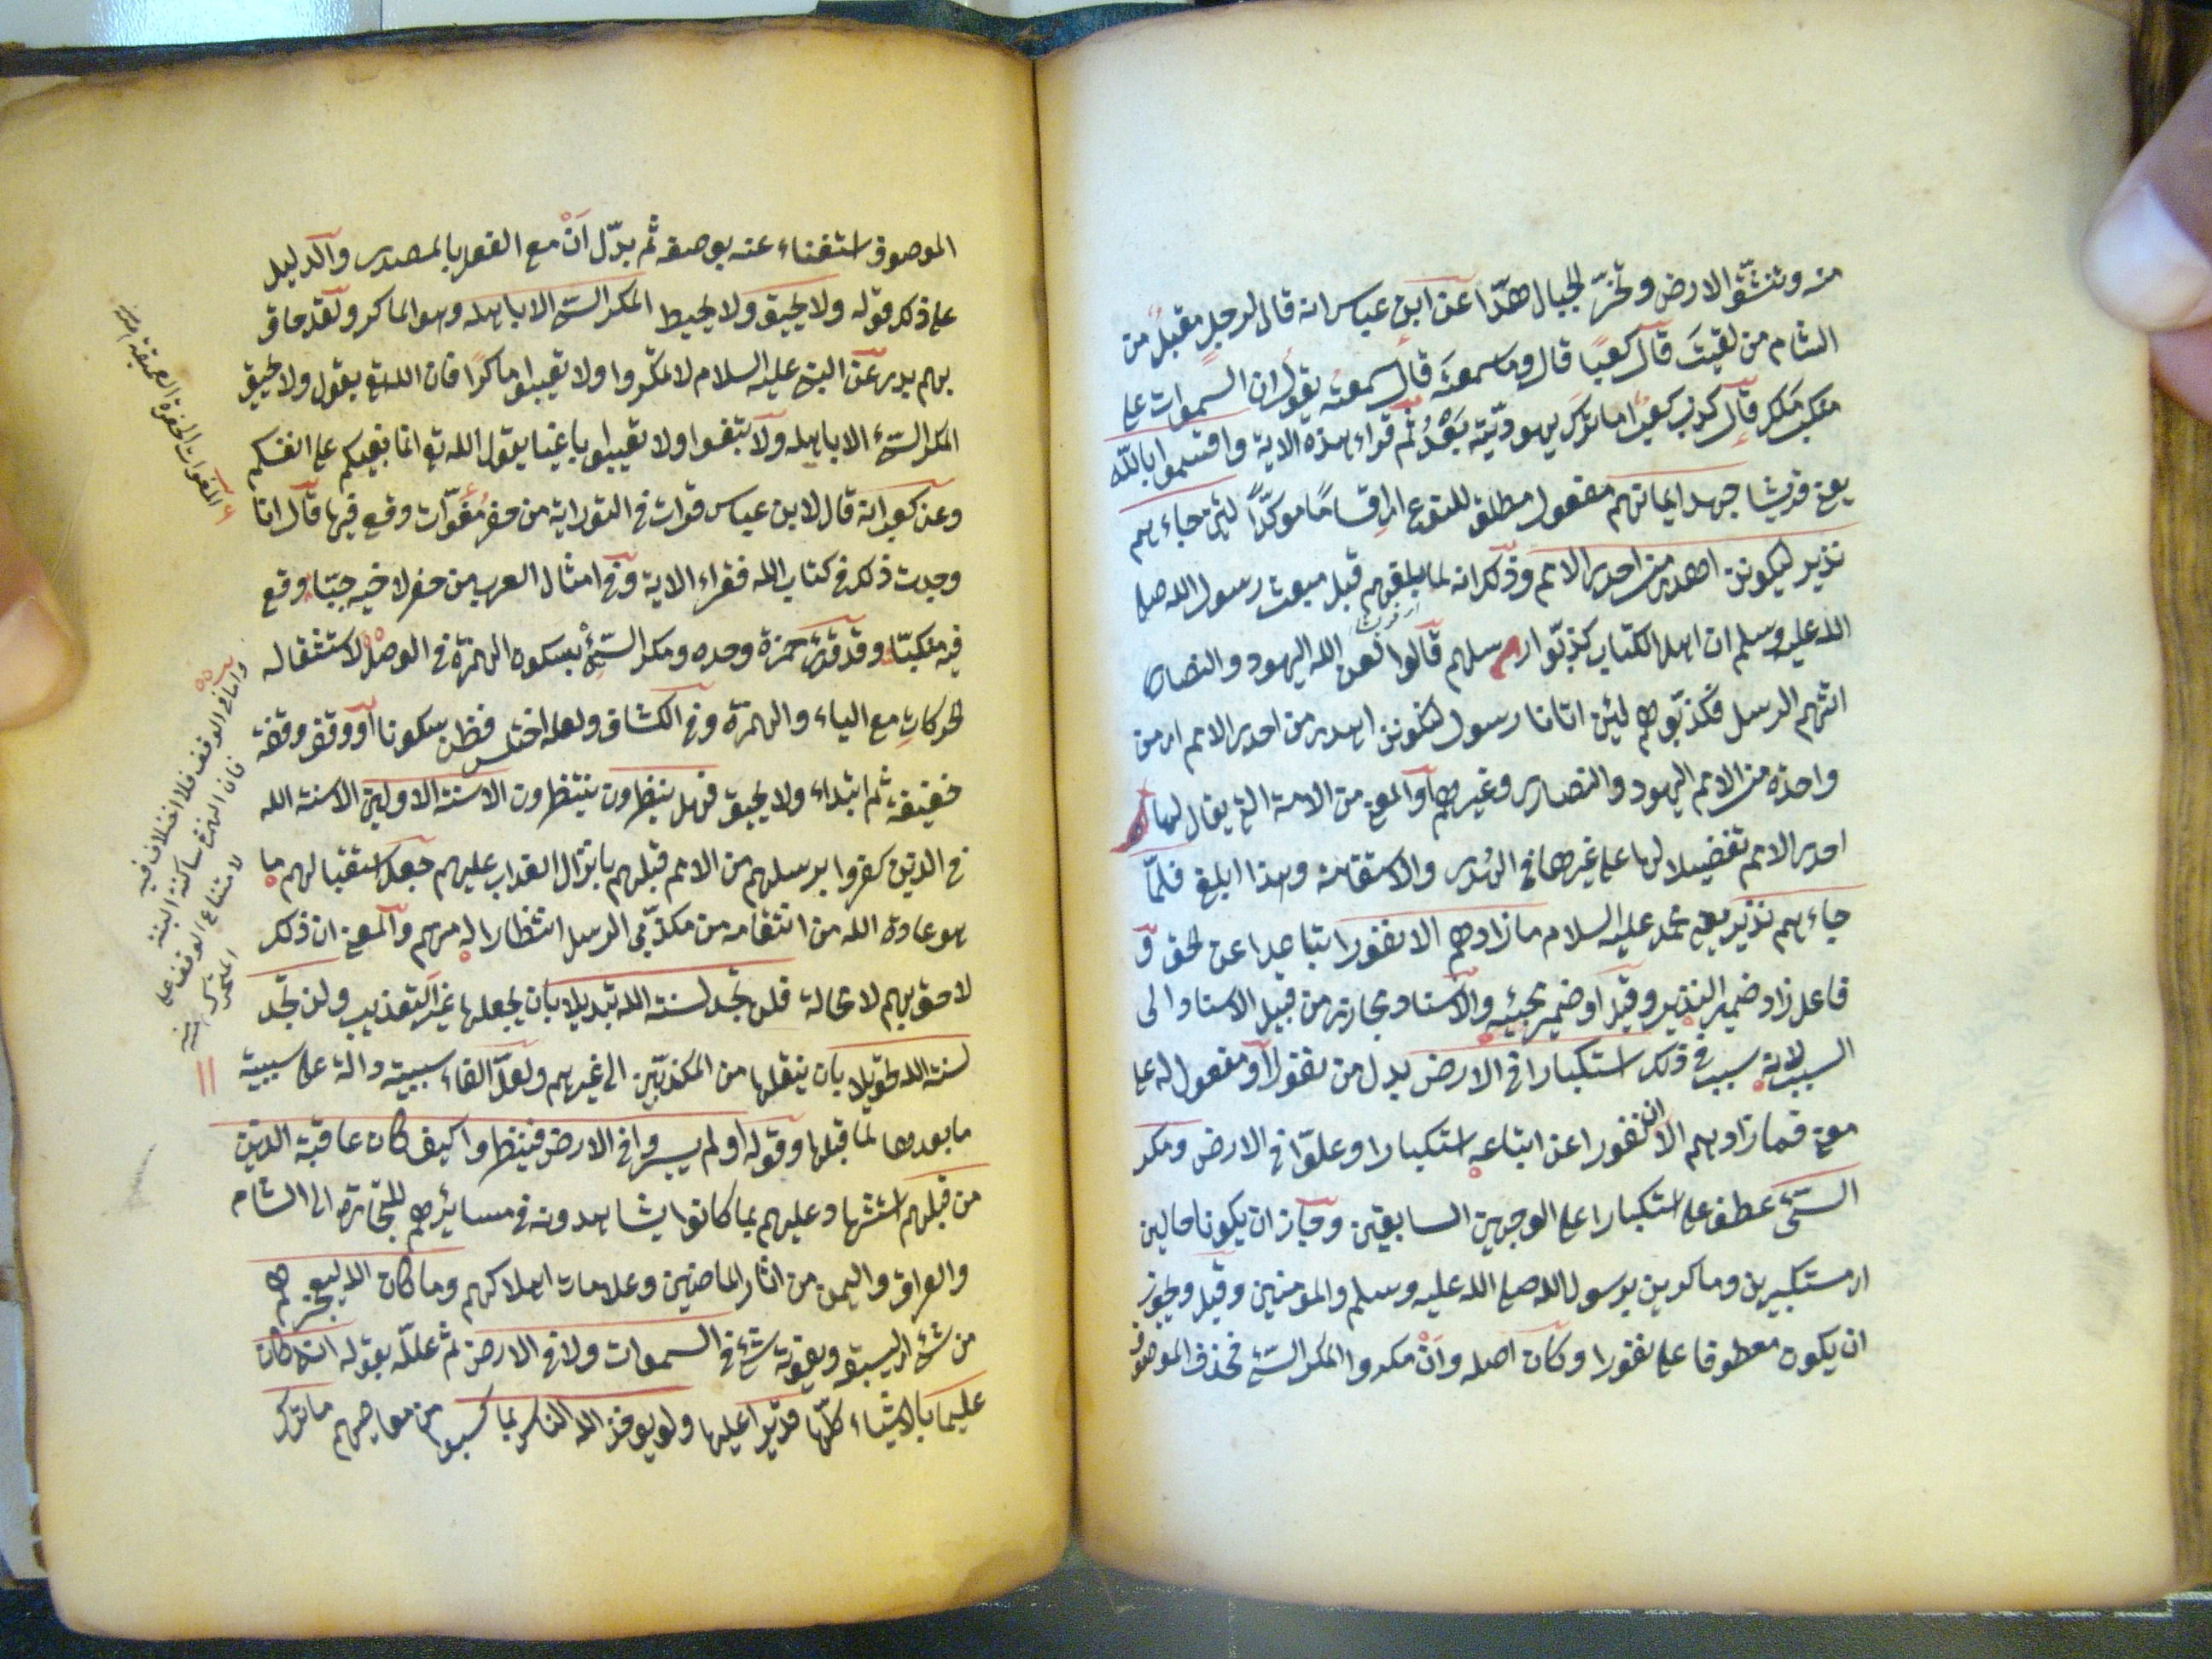 منه وتنشقّ الارض وتخرّ الجبال هدّا عن ابن عباس انه قال لرجل مقبل من
الشام من لقيتَ قال كعبًا قال وما سمعتَه قال سمعته يقول ان السموات على
منكب ملك قال كذب كعب اما ترك يهوديّته بَعْدُ ثم قراء هذه الاية واقسموا بالله
يعنى قريشا جهد ايمانهم مفعول مطلق للنوع اى اقساما موكّدًا لئن جاءهم
نذير ليكونن اهدى من احدى الامم وذلك انه لما بلغهم قبل مبعث رسول الله صلى
الله عليه وسلم ان اهل الكتاب كذبّوا رسلهم قالوا لعن الله اليهود والنصارى
اتتهم الرسل فكذبوهم لئن اتانا رسول لنكونن اهدى من احدى الامم اى من
واحدة من الامم اليهود والنصارى وغيرهم او المعنى من الامة التى يقال لها
احدى الامم تفضيلا لها على غيرها فى الهُدى والاستقامة وهذا ابلغ فلمّا
جاءهم نذير يعنى محمد عليه السلام ما زادهم الا نفورا تباعدا عن الحق و
فاعل زاد ضمير النذير وقيل او ضمير مجيئه والاسناد مجازى من قبيل الاسناد الى
السبب لانه سبب فى ذلك استكبارا فى الارض بدل من نفورا او مفعول له على
معنى فما زادهم الا ان نفورا عن اتباعه استكبارا وعلوّا فى الارض ومكر
السّىّئ عطف على استكبارا على الوجهين السابقين وجاز ان يكونا حالين
اى مستكبرين وماكرين برسول الله صلى الله عليه وسلم والمومنين وقيل ويجوز
ان يكون معطوفا على نفورا وكان اصله وأَنْ مكروا المكر السّيّئ فحذف الموصوف
الموصوف استغناء عنه بوصفه ثم بدّل اَنْ مع الفعل بالمصدر والدليل
على ذلك قوله ولا يحيق ولا يحيط المكر السّيّئ الا باهله وهو الماكر ولقد حاق
بهم يدر عن النبى عليه السلام لا تمكروا ولا تعينوا ماكرًا فان الله تع يقول ولا يحيق
المكر السّيّئ الا باهله ولا تبغوا ولا تعينوا باغيا يقول الله تع انما بغيكم على انفسكم
وعن كعب انه قال لابن عباس قرات فى التوراية من حفر مُغَوّات وقع فيها قال انا
وجدت ذلك فى كتاب الله فقراء الاية وفى امثال العرب من حفر لاخيه جبّا وقع
فيه منكبّا وقد قرئ حمزة وحده ومكر السّيّئْ بسكون الهمزة فى الوصل لاستثقاله
الحركات مع الياء والهمزة وفى الكشاف ولعله اختلس فظن سكونا او وقف وقفة
خفيفة ثم ابتداء ولا يحيق فهل ينظرون ينتظرون الا سنة الاولين الا سنة الله
فى الذين كفروا برسلهم من الامم قبلهم بانزال العذاب عليهم جعل استقبالهم ما
هو عادة الله من انتقامه من مكذّبى الرسل انتظارا له منهم والمعنى ان ذلك
لاحق بهم لا محالة فلن تجد لسنة الله تبديلا بان يجعلها غير التعذيب ولن تجد
لسنة الله تحويلا بان ينقلها من المكذبين الى غيرهم ولعلّ الفاء سببية دالة على سببية
ما بعدها لما قبلها وقوله اولم يسيروا فى الارض فينظروا كيف كان عاقبة الذين
من قبلهم استشهاد عليهم بما كانوا يشاهدونه فى مسايرهم للتجارة الى الشام
والعراق واليمن من اثار الماضين وعلامات اهلاكهم وما كان الله ليعجزهم
من شئ اى ليسبقه ويفوته شئ فى السموات ولا فى الارض ثم علّله بقوله انه كان
عليما بالاشياء كلّها قديرا عليها ولو يوخذ الله الناس بما كسبوا من معاصيهم ما ترك
المغوات الحفرة العميقة
واما فى الوقف فلا اختلاف فيه
فان الهمزة ساكنة البتة
لامتناع الوقف على
المتحرك